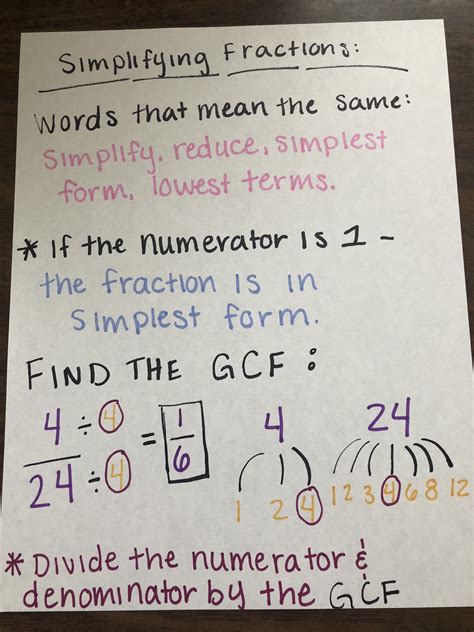 Simplifying Fractions:
Words that mean the same:
Simplify, reduce, simplest
form, lowest terms.
* If the numerator is 1 -
the fraction is in
simplest form.
FIND THE GCF:
4 ÷ 4 = 1 4 24
24 ÷ 4 6 1 2 4 1 2 3 4 6 8 12
* Divide the numerator &
denominator by the GCF